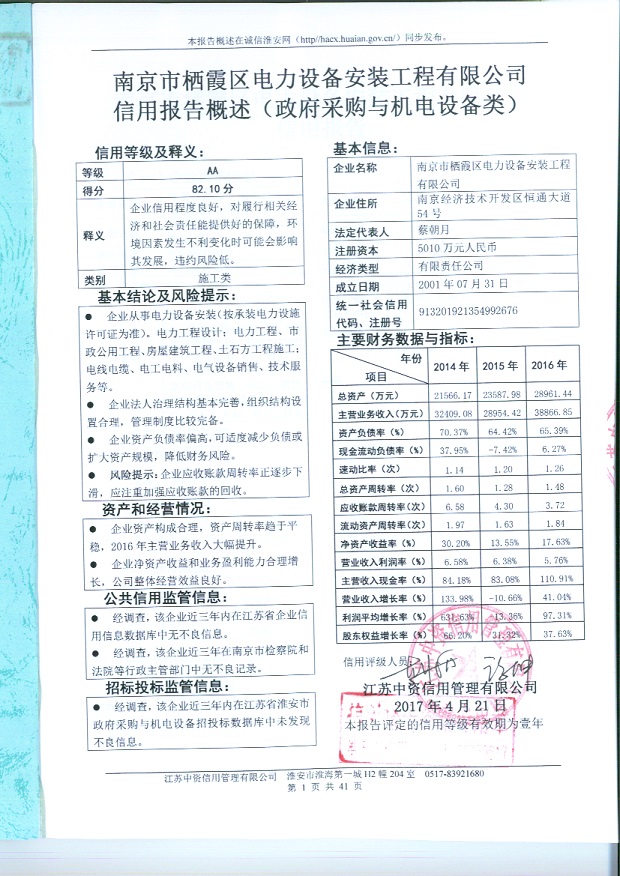 本报告概述在诚信淮安网（http//hacx.huaian.gov.cn/）同步发布。
南京市栖霞区电力设备安装工程有限公司
信用报告概述（政府采购与机电设备类）
信用等级及释义：
等级 AA
得分 82.10分
释义
企业信用程度良好，对履行相关经
济和社会责任能提供好的保障，环
境因素发生不利变化时可能会影响
其发展，违约风险低。
类别 施工类
基本结论及风险提示：
● 企业从事电力设备安装（按承装电力设施
许可证为准）。电力工程设计；电力工程、市
政公用工程、房屋建筑工程、土石方工程施工；
电线电缆、电工电料、电气设备销售、技术服
务等。
● 企业法人治理结构基本完善，组织结构设
置合理，管理制度比较完备。
● 企业资产负债率偏高，可适度减少负债或
扩大资产规模，降低财务风险。
● 风险提示：企业应收账款周转率正逐步下
滑，应注重加强应收账款的回收。
资产和经营情况：
● 企业资产构成合理，资产周转率趋于平
稳，2016 年主营业务收入大幅提升。
● 企业净资产收益和业务盈利能力合理增
长，公司整体经营效益良好。
公共信用监管信息：
● 经调查，该企业近三年内在江苏省企业信
用信息数据库中无不良信息。
● 经调查，该企业近三年在南京市检察院和
法院等行政主管部门中无不良记录。
招标投标监管信息：
● 经调查，该企业近三年内在江苏省淮安市
政府采购与机电设备招投标数据库中未发现
不良信息。
基本信息：
企业名称 南京市栖霞区电力设备安装工程
有限公司
企业住所 南京经济技术开发区恒通大道
54 号
法定代表人 蔡朝月
注册资本 5010 万元人民币
经济类型 有限责任公司
成立日期 2001 年 07 月 31 日
统一社会信用
代码、注册号 913201921354992676
主要财务数据与指标：
年份 项目 2014 年 2015 年 2016 年
总资产（万元） 21566.17 23587.98 28961.44
主营业务收入（万元） 32409.08 28954.42 38866.85
资产负债率（%） 70.37% 64.42% 65.39%
现金流动负债率（%） 37.95% -7.42% 6.27%
速动比率（次） 1.14 1.20 1.26
总资产周转率（次） 1.60 1.28 1.48
应收账款周转率（次） 6.58 4.30 3.72
流动资产周转率（次） 1.97 1.63 1.84
净资产收益率（%） 30.20% 13.55% 17.63%
营业收入利润率（%） 6.58% 6.38% 5.76%
主营收入现金率（%） 84.18% 83.08% 110.91%
营业收入增长率（%） 133.98% -10.66% 41.04%
利润平均增长率（%） 631.63% -13.36% 97.31%
股东权益增长率（%） 66.20% 31.32% 37.63%
信用评级人员
江苏中资信用管理有限公司
2017 年 4 月 21 日
本报告评定的信用等级有效期为壹年
江苏中资信用管理有限公司 淮安市淮海第一城 H2 幢 204 室 0517-83921680
第 1 页 共 41 页